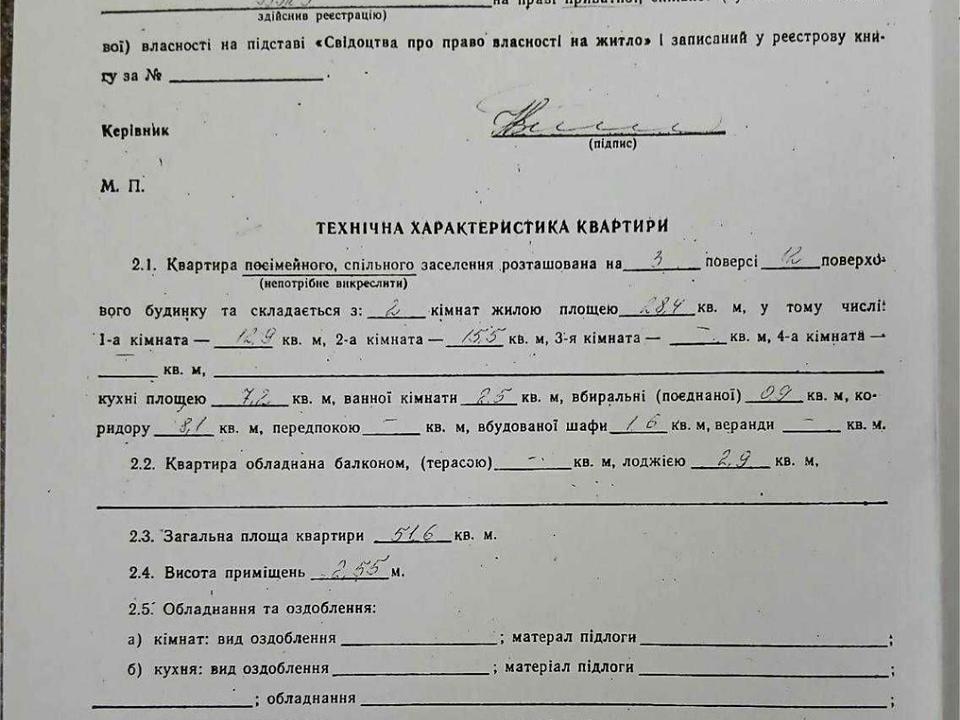 на праві приватної,
здійснив реєстрацію)
вої) власності на підставі «Свідоцтва про право власності на житло» і записаний у реєстрову кни-
гу за № ____________.
Керівник
(підпис)
М. П.
ТЕХНІЧНА ХАРАКТЕРИСТИКА КВАРТИРИ
2.1. Квартира посімейного, спільного заселення розташована на 3 поверсі 12 поверхо-
(непотрібне викреслити)
вого будинку та складається з: 2 кімнат жилою площею 28,4 кв. м, у тому числі:
1-а кімната — 12,9 кв. м, 2-а кімната — 15,5 кв. м, 3-я кімната — — кв. м, 4-а кімната —
— кв. м,
кухні площею 7,2 кв. м, ванної кімнати 2,5 кв. м, вбиральні (поєднаної) 0,9 кв. м, ко-
ридору 8,1 кв. м, передпокою — кв. м, вбудованої шафи 1,6 кв. м, веранди — кв. м.
2.2. Квартира обладнана балконом, (терасою) — кв. м, лоджією 2,9 кв. м,
2.3. Загальна площа квартири 51,6 кв. м.
2.4. Висота приміщень 2,55 м.
2.5. Обладнання та оздоблення:
а) кімнат: вид оздоблення ____________; матерал підлоги ____________;
б) кухня: вид оздоблення ____________; матеріал підлоги ____________;
____________; обладнання ____________;